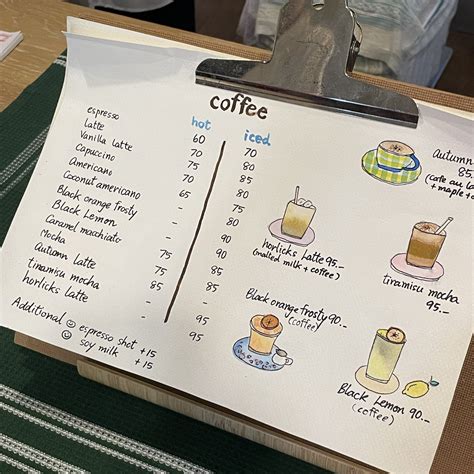 coffee
hot iced
espresso 60 70
Latte 70 80
Vanilla latte 75 85
Capuccino 70 80
Americano 65 75
Coconut americano - 80
Black orange frosty - 90
Black Lemon - 90
Caramel macchiato 75 85
Mocha 75 85
Autumn Latte 85 -
tiramisu mocha - 95
horlicks latte - 95
Additional espresso shot +15
soy milk +15
Autumn
85.
(cafe au la
+ maple +
horlicks Latte 95.-
(malled milk + coffee)
tiramisu mocha
95.-
Black orange frosty 90.-
(coffee)
Black Lemon 90.-
(coffee)